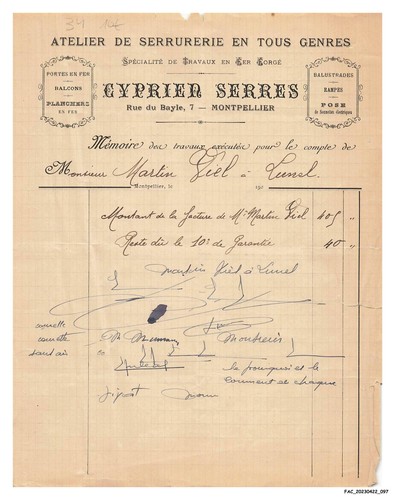 ATELIER DE SERRURERIE EN TOUS GENRES
Spécialité de Travaux en Fer Forgé
PORTES EN FER
BALCONS
ET
PLANCHERS
EN FER
CYPRIEN SERRES
Rue du Bayle, 7 — MONTPELLIER
BALUSTRADES
RAMPES
ET
POSE
de Sonnettes électriques
Mémoire des travaux exécutés pour le compte de
Monsieur Martin Viel à Lunel
Montpellier, le 191
Montant de la facture de Mr Martin Viel 405 "
Reste dû le 10e de Garantie 40 "
Martin Viel à Lunel
la pourquoi et le
comment de chaque
FAC_20230422_097